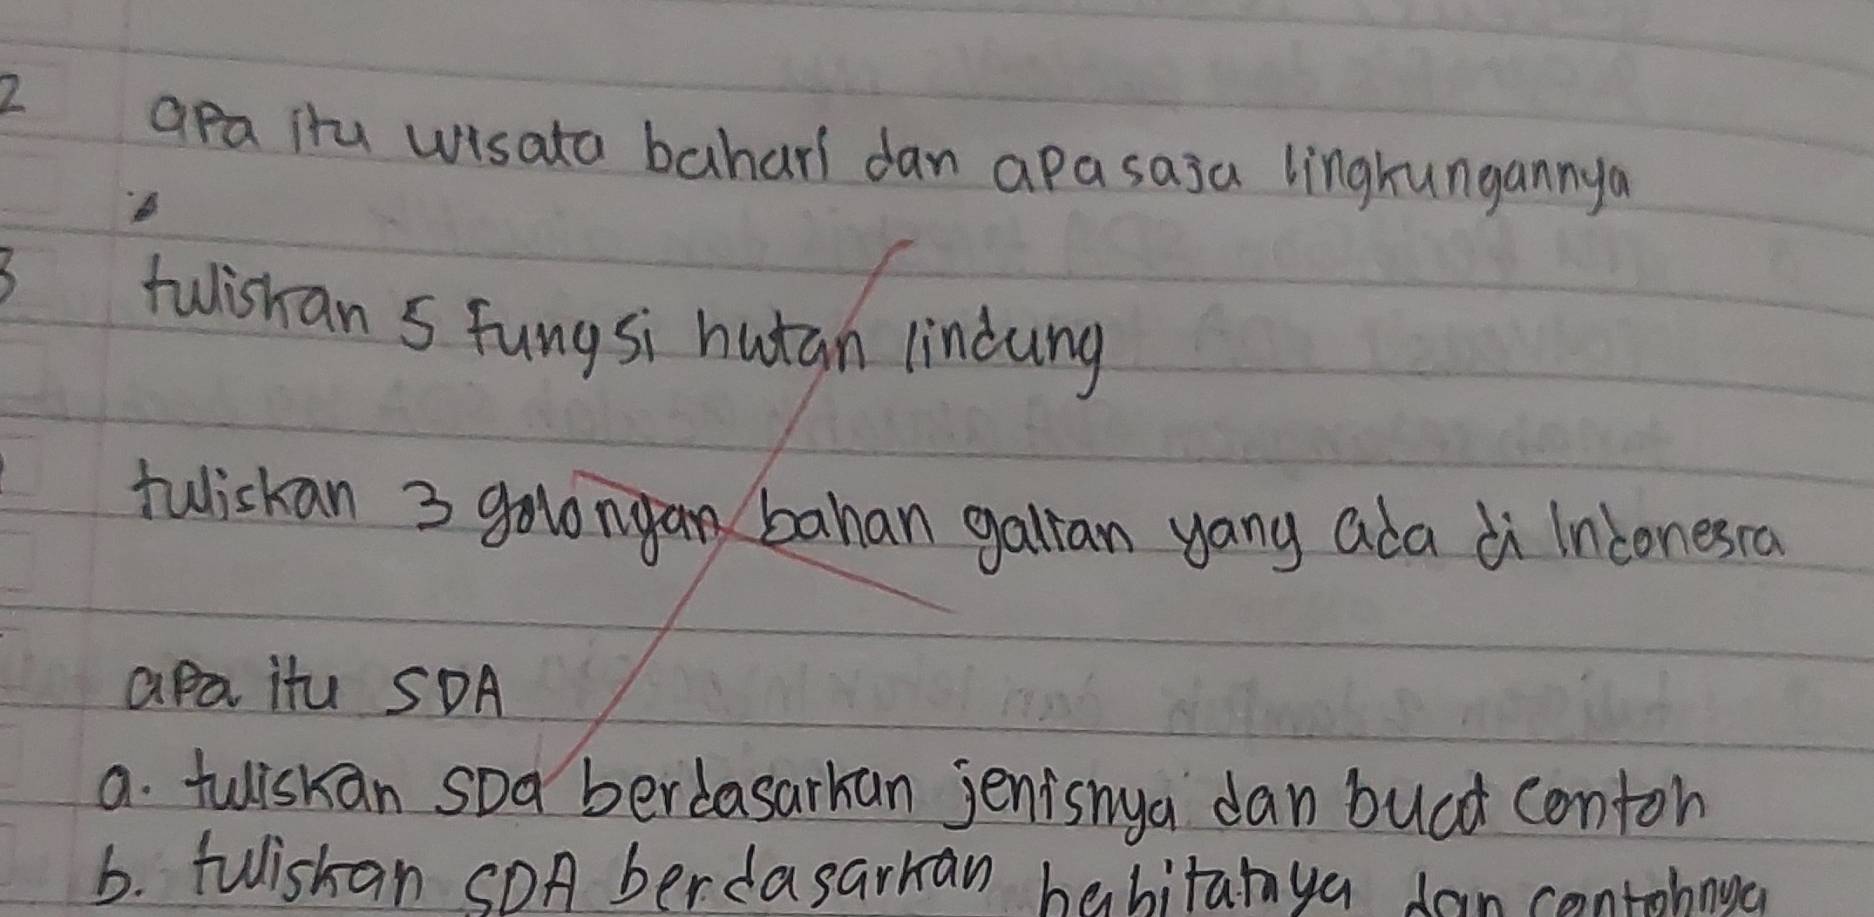 2 apa itu wisata bahari dan apasaja lingkungannya
3 tuliskan 5 fungsi hutan lindung
tuliskan 3 golongan bahan galian yang ada di indonesia
apa itu SDA
a. tuliskan SDA berdasarkan jenisnya dan buat contoh
b. tuliskan SDA berdasarkan habitatnya dan contohnya